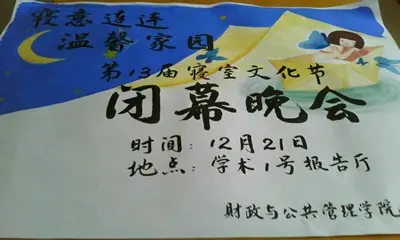 寝意连连
温馨家园
第13届寝室文化节
闭幕晚会
时间：12月21日
地点：学术1号报告厅
财政与公共管理学院